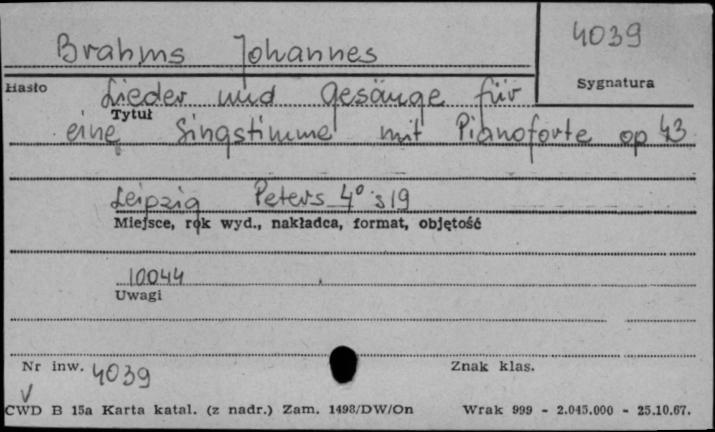 Brahms Johannes
4039
Hasło
Sygnatura
Lieder und Gesänge für
Tytuł
eine Singstimme mit Pianoforte op 43
Leipzig Peters 4° s 19
Miejsce, rok wyd., nakładca, format, objętość
10044
Uwagi
Nr inw. 4039
Znak klas.
CWD B 15a Karta katal. (z nadr.) Zam. 1498/DW/On Wrak 999 - 2.045.000 - 25.10.67.